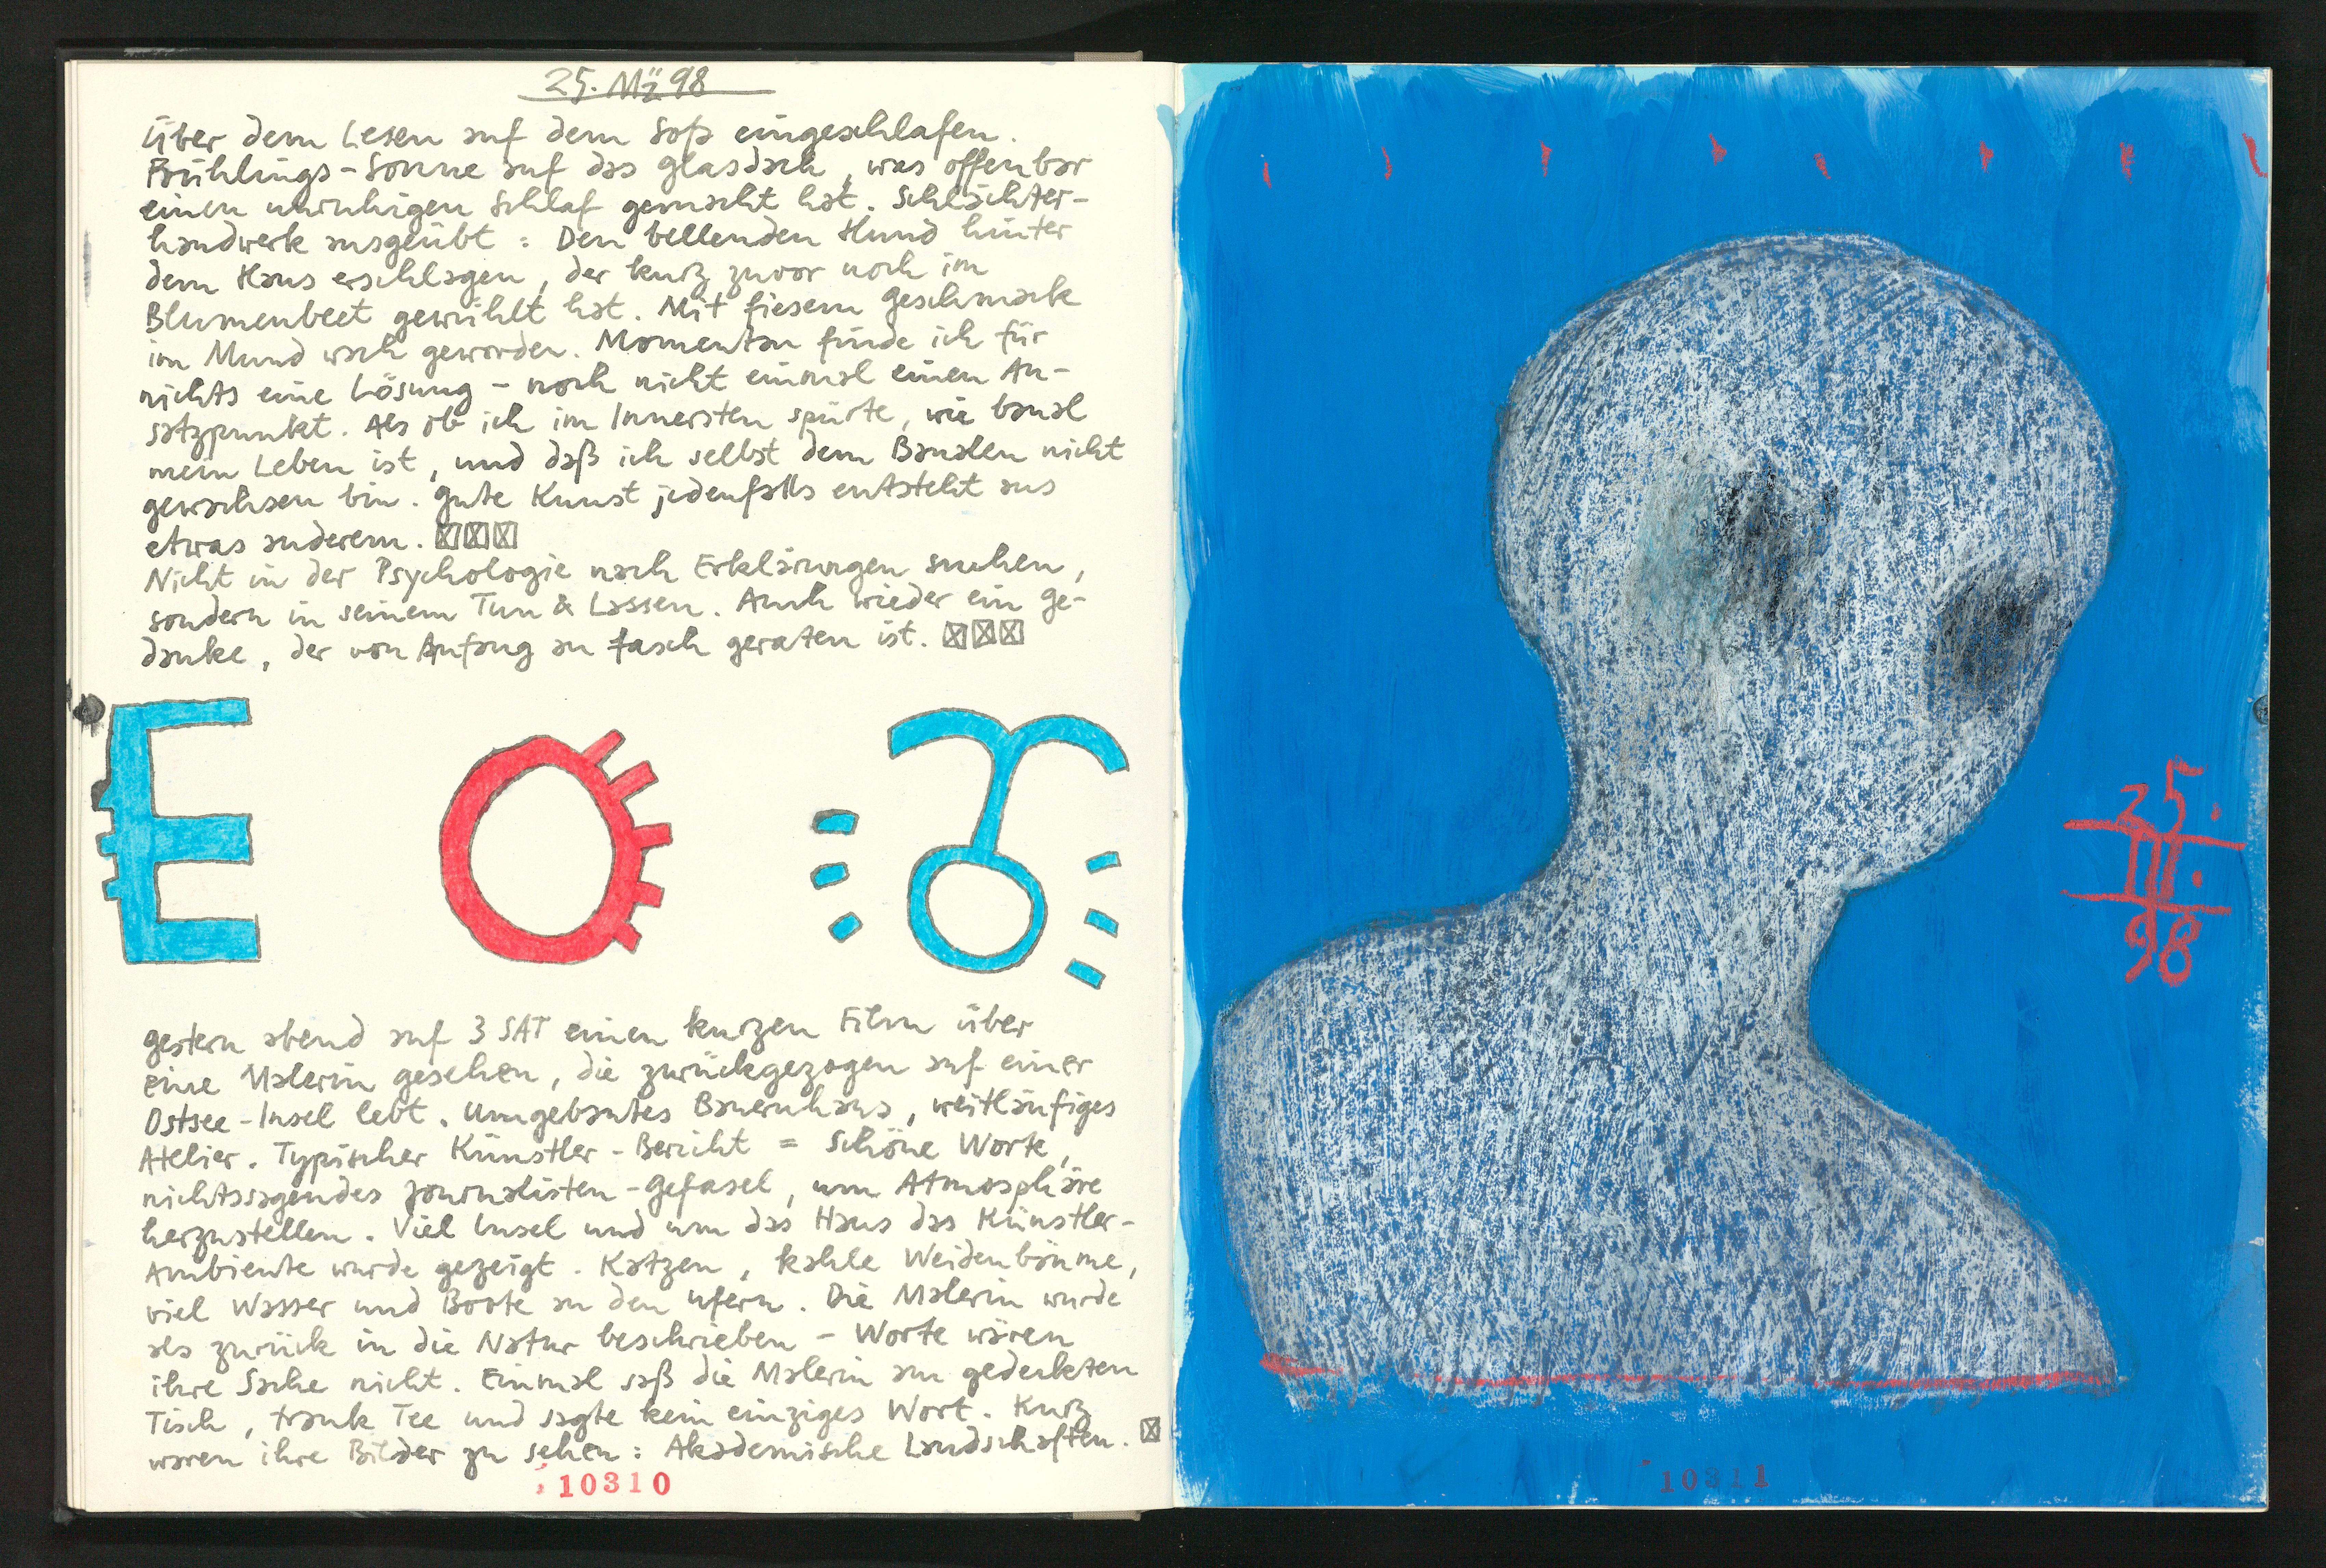 25. Mz 98
Über dem Lesen auf dem Sofa eingeschlafen.
Frühlings-Sonne auf das Glasdach, was offenbar
einen unruhigen Schlaf gemacht hat. Schlächter-
handwerk ausgeübt: Den bellenden Hund hinter
dem Haus erschlagen, der kurz zuvor noch im
Blumenbeet gewühlt hat. Mit fiesem Geschmack
im Mund wach geworden. Momentan finde ich für
nichts eine Lösung – noch nicht einmal einen An-
satzpunkt. Als ob ich im Innersten spürte, wie banal
mein Leben ist, und daß ich selbst dem Banalen nicht
gewachsen bin. Gute Kunst jedenfalls entsteht aus
etwas anderem.
Nicht in der Psychologie nach Erklärungen suchen,
sondern in seinem Tun & Lassen. Auch wieder ein Ge-
danke, der von Anfang an fasch geraten ist.
E O
Gestern abend auf 3 SAT einen kurzen Film über
eine Malerin gesehen, die zurückgezogen auf einer
Ostsee-Insel lebt. Umgebautes Bauernhaus, weitläufiges
Atelier. Typischer Künstler-Bericht = Schöne Worte,
nichtssagendes Journalisten-Gefasel, um Atmosphäre
herzustellen. Viel Insel und um das Haus das Künstler-
Ambiente wurde gezeigt. Katzen, kahle Weidenbäume,
viel Wasser und Boote an den Ufern. Die Malerin wurde
als zurück in die Natur beschrieben – Worte wären
ihre Sache nicht. Einmal saß die Malerin am gedeckten
Tisch, trank Tee und sagte kein einziges Wort. Kurz
waren ihre Bilder zu sehen: Akademische Landschaften.
10310
25.
III.
98
10311